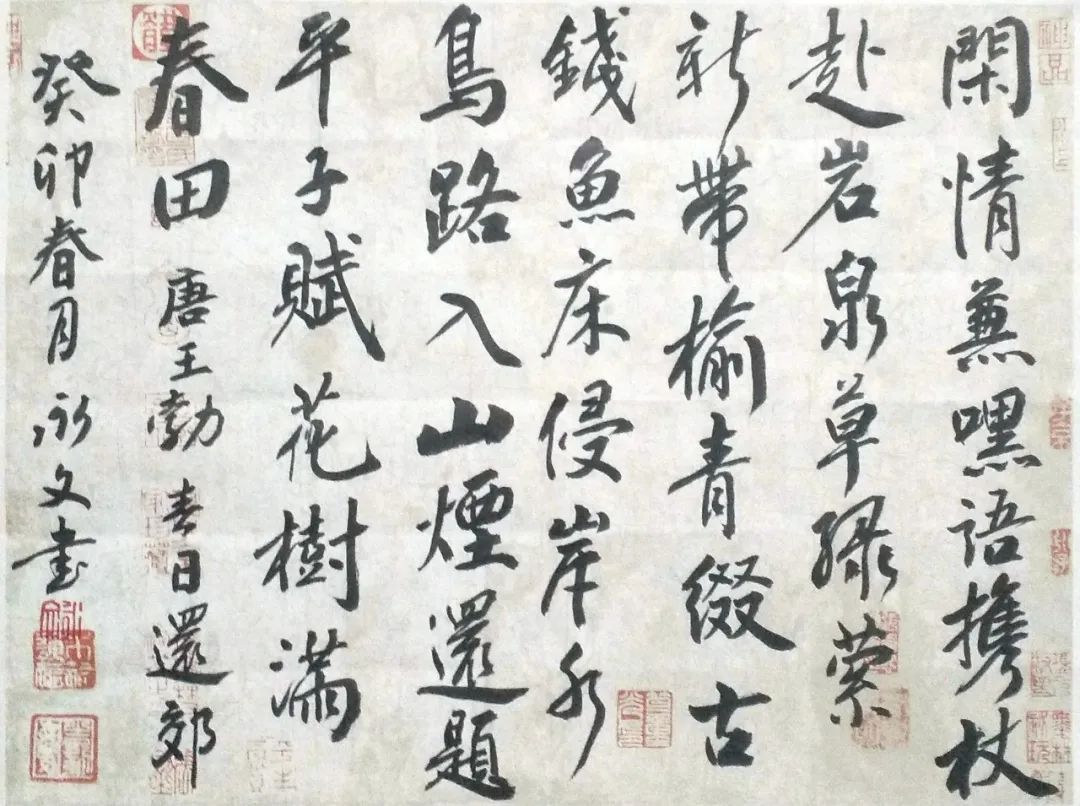 閑情兼嘿語携杖
赴岩泉草緑縈
新帶榆青綴古
錢魚床侵岸水
鳥路入山煙還題
平子賦花樹滿
春田 唐王勃 春日還郊
癸卯春月永文書